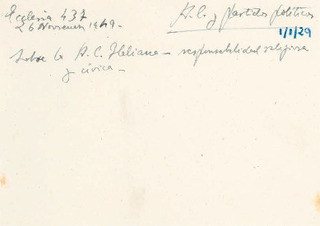 Ecclesia 437
26 Noviembre 1949.-
A.C. y partidos políticos
1/1/29
Sobre la A.C. Italiana - responsabilidad religiosa
y cívica -